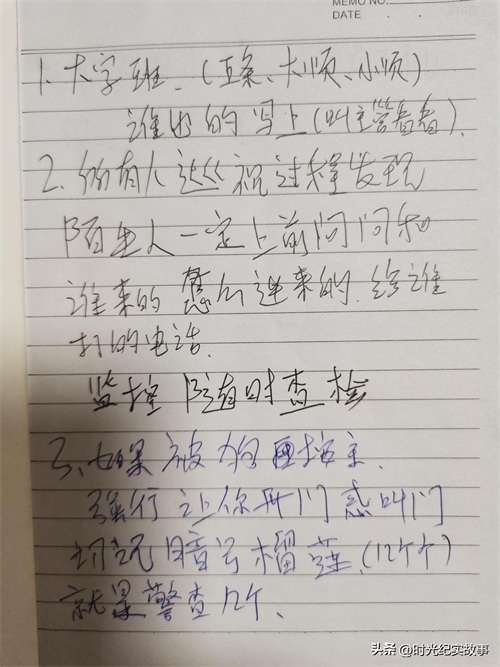 MEMO NO.
DATE
1. 大字班.(五条、大顺、小顺)
谁出的写上(叫主管看着).
2. 所有人 过程发现
陌生人一定上前问问和
谁来的 怎么进来的.给谁
打的电话.
监控 随时查检
3、如果被
强行让你开门 叫门
切记暗号榴莲.(12个个)
就是警查几个、
头条 @时光纪实故事